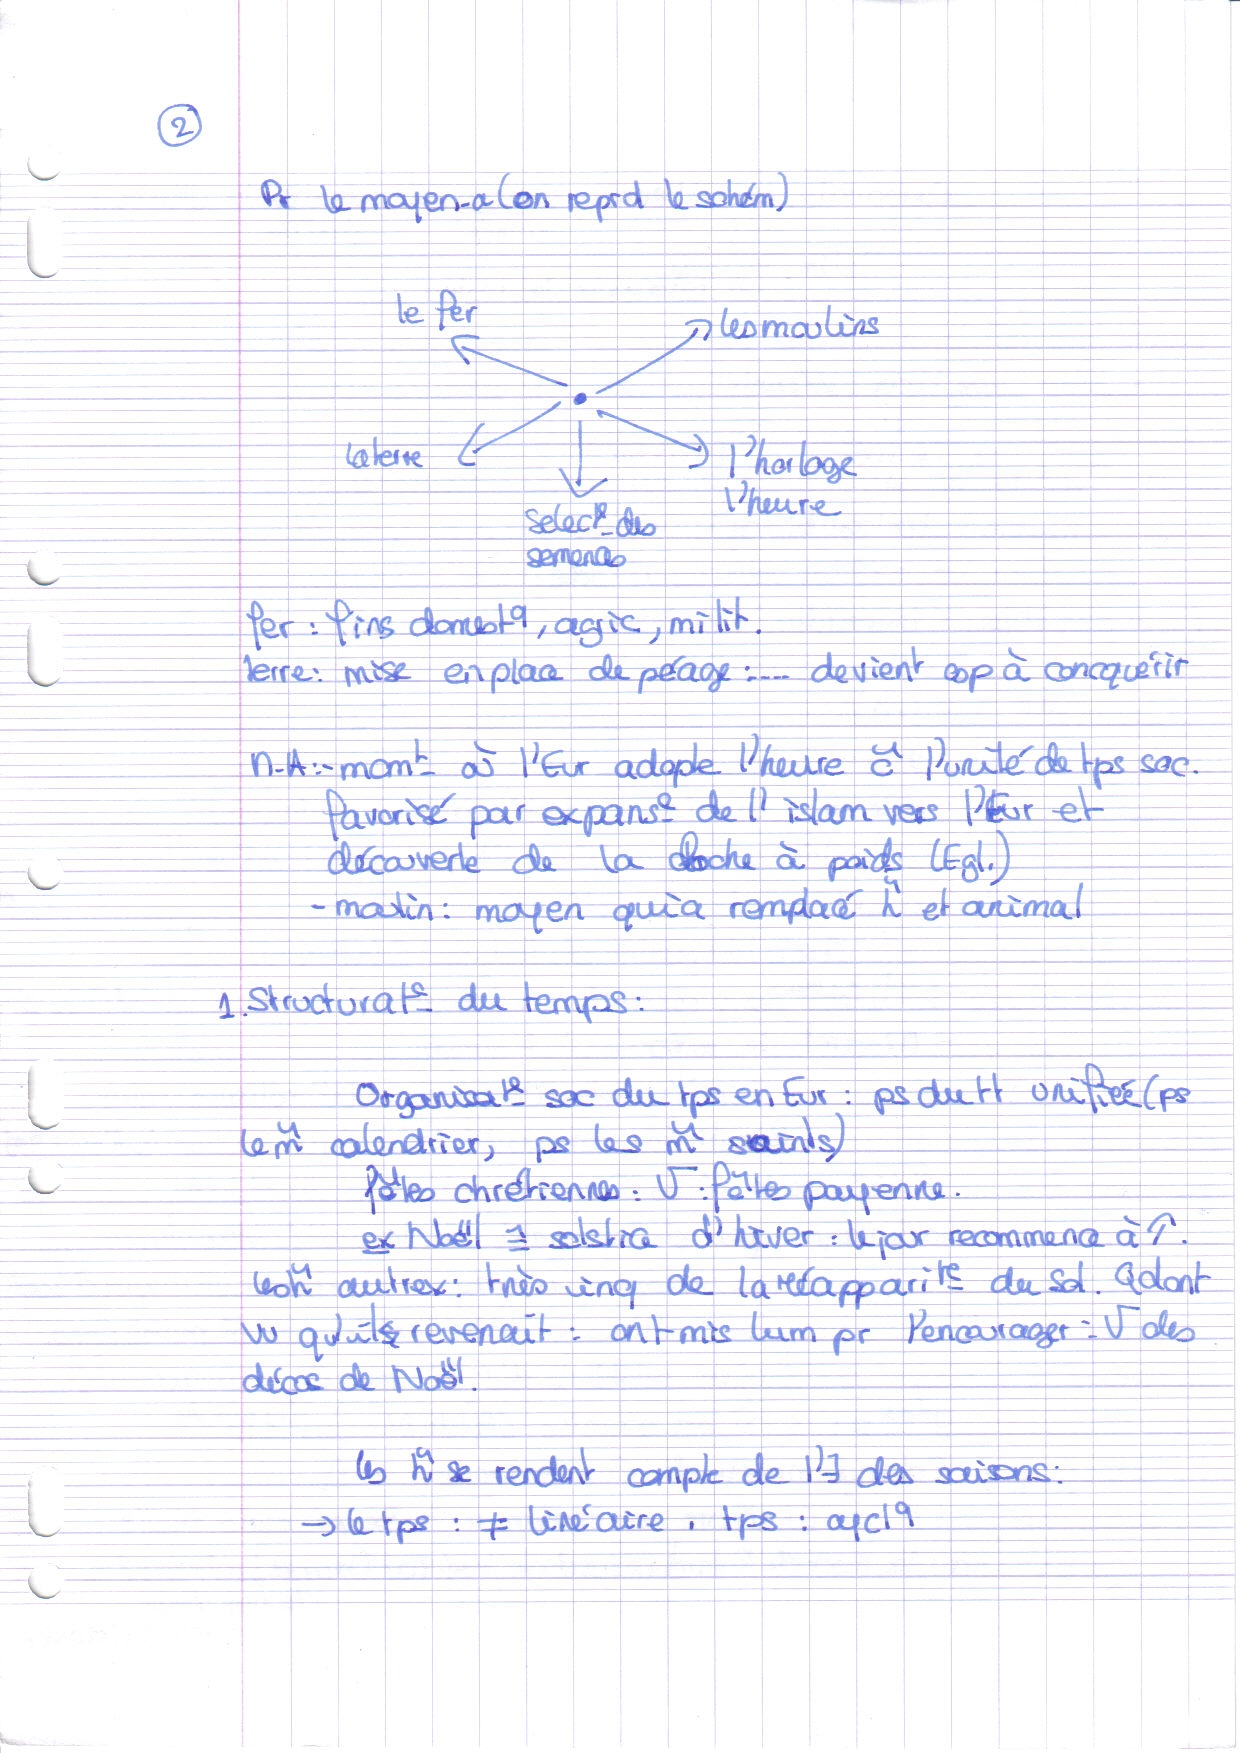 2
Pr le moyen-a (on reprd le schém)
le fer
les moulins
la terre
l'horloge
l'heure
select° des
semences
fer : fins domestq, agric, milit.
terre : mise en place de péage :.... devient esp à concquérir
M-A :- momt où l'Eur adopte l'heure c̃ l'unité de tps soc.
favorisé par expans° de l'islam vers l'Eur et
découverte de la cloche à poids (Egl.)
- moulin : moyen qui a remplacé h̃ et animal
1. Structurat° du temps :
Organisat° soc du tps en Eur : ps du tt unifiée (ps
le m̃ calendrier, ps les m̃ saints)
fêtes chrétiennes : V : fêtes payenne.
ex Noël = solstice d'hiver : le jour recommence à ↑.
les h̃ autrex : très inq de la réapparit° du Sol. Qdont
vu qu'ils revenait : ont mis lum pr l'encourager = V des
décos de Noël.
les h̃ se rendent compte de l'∃ des saisons :
→ le tps : ≠ linéaire . tps : cyclq